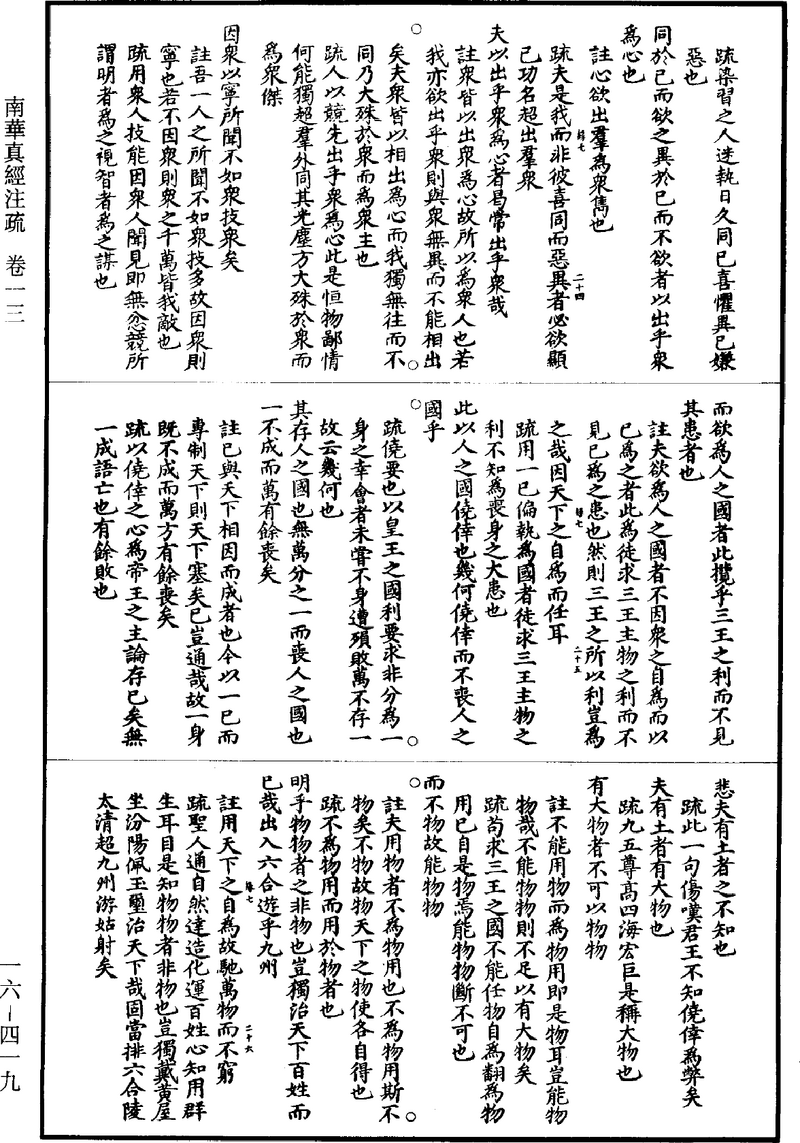 南華真經注疏　卷一三
疏染習之人迷執日久同己喜懼異己嫌
惡也
同於己而欲之異於己而不欲者以出乎衆
爲心也
註心欲出羣爲衆儁也
疏夫是我而非彼喜同而惡異者必欲顯
己功名超出羣衆
夫以出乎衆爲心者曷常出乎衆哉
註衆皆以出衆爲心故所以爲衆人也若
我亦欲出乎衆則與衆無異而不能相出
矣夫衆皆以相出爲心而我獨無往而不
同乃大殊於衆而爲衆主也
疏人以競先出乎衆爲心此是恒物鄙情
何能獨超羣外同其光塵方大殊於衆而
爲衆傑
因衆以寧所聞不如衆技衆矣
註吾一人之所聞不如衆技多故因衆則
寧也若不因衆則衆之千萬皆我敵也
疏用衆人技能因衆人聞見即無忿競所
謂明者爲之視智者爲之謀也
二十四
而欲爲人之國者此攬乎三王之利而不見
其患者也
註夫欲爲人之國者不因衆之自爲而以
己爲之者此爲徒求三王主物之利而不
見己爲之患也然則三王之所以利豈爲
之哉因天下之自爲而任耳
疏用一己偏執爲國者徒求三王主物之
利不知爲喪身之大患也
此以人之國僥倖也幾何僥倖而不喪人之
國乎
疏僥要也以皇王之國利要求非分爲一
身之幸會者未嘗不身遭殞敗萬不存一
故云幾何也
其存人之國也無萬分之一而喪人之國也
一不成而萬有餘喪矣
註己與天下相因而成者也今以一己而
專制天下則天下塞矣己豈通哉故一身
既不成而萬方有餘喪矣
疏以僥倖之心爲帝王之主論存已矣無
一成語亡也有餘敗也
二十五
悲夫有土者之不知也
疏此一句傷嘆君王不知僥倖爲弊矣
夫有土者有大物也
疏九五尊高四海宏巨是稱大物也
有大物者不可以物物
註不能用物而爲物用即是物耳豈能物
物哉不能物物則不足以有大物矣
疏苟求三王之國不能任物自爲翻爲物
用己自是物焉能物物斷不可也
而不物故能物物
註夫用物者不爲物用也不爲物用斯不
物矣不物故物天下之物使各自得也
疏不爲物用而用於物者也
明乎物物者之非物也豈獨治天下百姓而
已哉出入六合遊乎九州
註用天下之自爲故馳萬物而不窮
疏聖人通自然達造化運百姓心知用群
生耳目是知物物者非物也豈獨戴黃屋
坐汾陽佩玉璽治天下哉固當排六合陵
太清超九州游姑射矣
二十六
一六—四一九